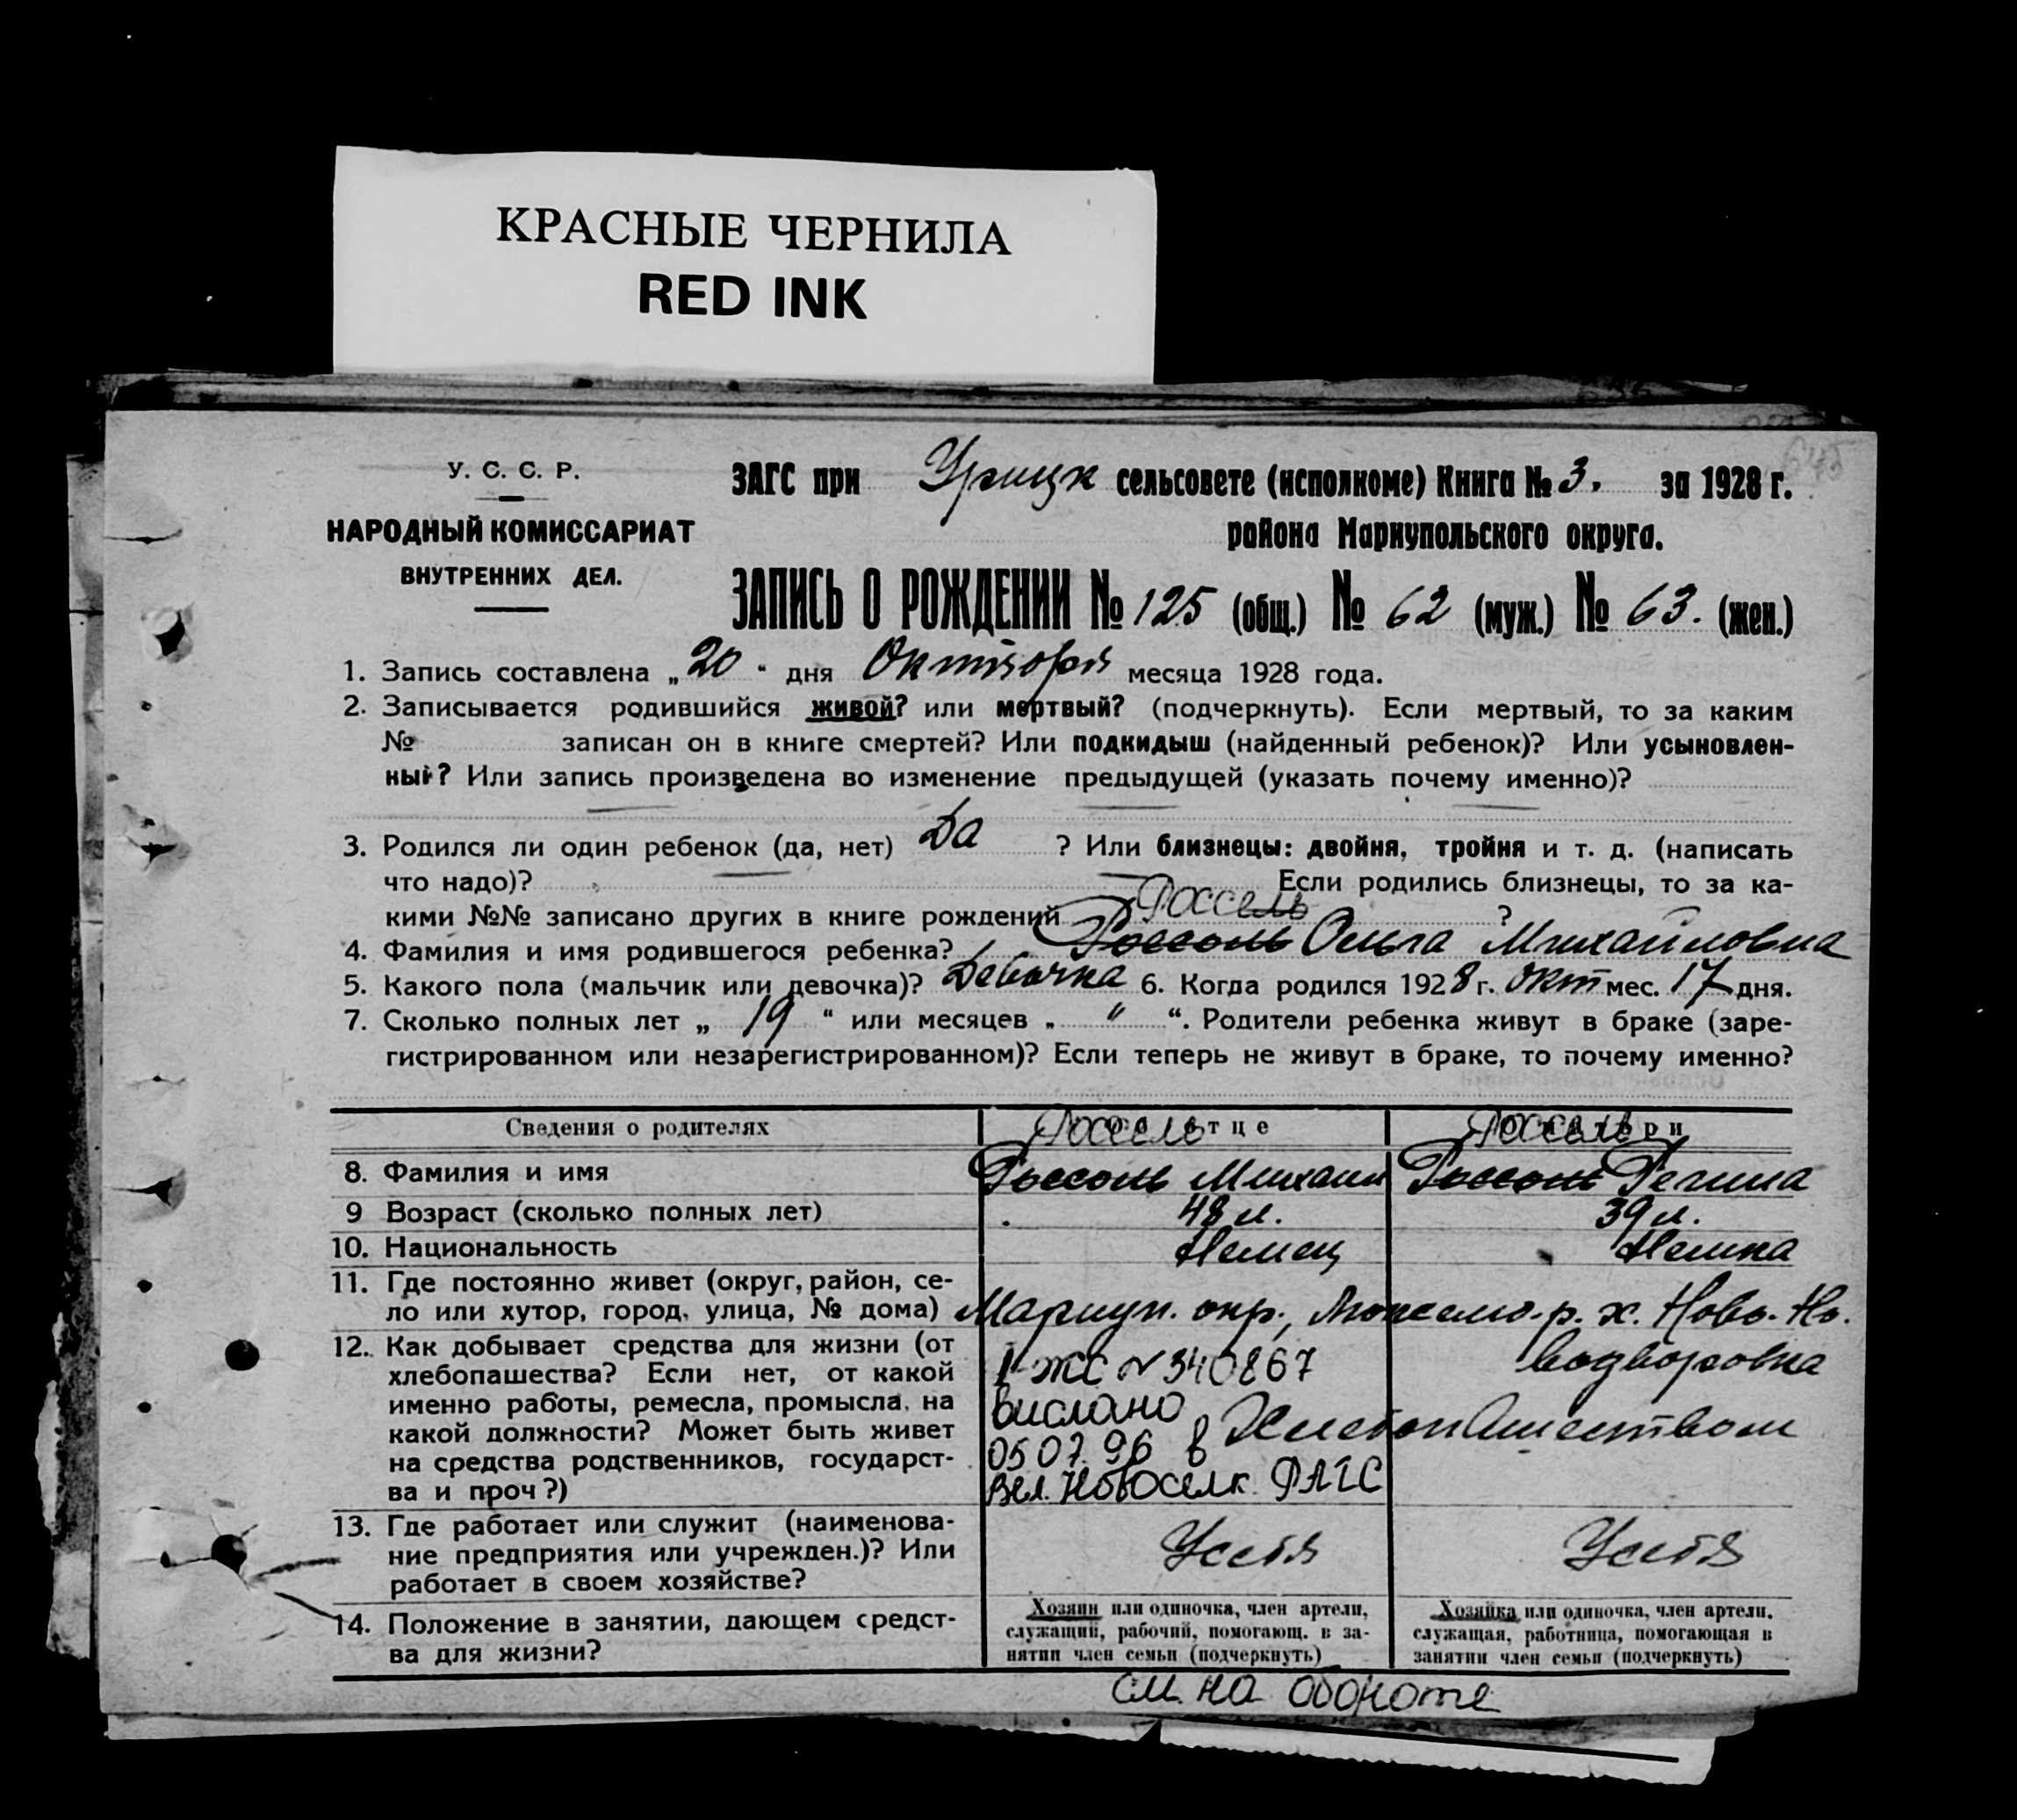 КРАСНЫЕ ЧЕРНИЛА
RED INK
У. С. С. Р.
НАРОДНЫЙ КОМИССАРИАТ
ВНУТРЕННИХ ДЕЛ.
ЗАГС при Урицк сельсовете (исполкоме) Книга № 3. за 1928 г.
района Мариупольского округа.
ЗАПИСЬ О РОЖДЕНИИ № 125 (общ.) № 62 (муж.) № 63. (жен.)
1. Запись составлена „20“ дня Октября месяца 1928 года.
2. Записывается родившийся живой? или мертвый? (подчеркнуть). Если мертвый, то за каким
№ записан он в книге смертей? Или подкидыш (найденный ребенок)? Или усыновлен-
ный? Или запись произведена во изменение предыдущей (указать почему именно)?
3. Родился ли один ребенок (да, нет) Да ? Или близнецы: двойня, тройня и т. д. (написать
что надо)? Если родились близнецы, то за ка-
кими №№ записано других в книге рождений ?
Россель
4. Фамилия и имя родившегося ребенка? Россоль Ольга Михайловна
5. Какого пола (мальчик или девочка)? Девочка 6. Когда родился 1928 г. окт мес. 17 дня.
7. Сколько полных лет „ 19 “ или месяцев „ “ “. Родители ребенка живут в браке (заре-
гистрированном или незарегистрированном)? Если теперь не живут в браке, то почему именно?
Сведения о родителях
Россель Россель
8. Фамилия и имя Россоль Михаил Россоль Регина
9 Возраст (сколько полных лет) 48 л. 39 л.
10. Национальность Немец Немка
11. Где постоянно живет (округ, район, се-
ло или хутор, город, улица, № дома) Мариуп. окр., р. х. Ново-
12. Как добывает средства для жизни (от
хлебопашества? Если нет, от какой
именно работы, ремесла, промысла, на
какой должности? Может быть живет
на средства родственников, государст-
ва и проч?)
I-ЖС № 340867
вислано
05 07. 96 в
Вел. Новоселк. РАГС
Хлебопашеством
13. Где работает или служит (наименова-
ние предприятия или учрежден.)? Или
работает в своем хозяйстве?
У себя У себя
14. Положение в занятии, дающем средст-
ва для жизни?
Хозяин или одиночка, член артели,
служащий, рабочий, помогающ. в за-
нятии член семьи (подчеркнуть)
Хозяйка или одиночка, член артели.
служащая, работница, помогающая в
занятии член семьи (подчеркнуть)
см. на обороте